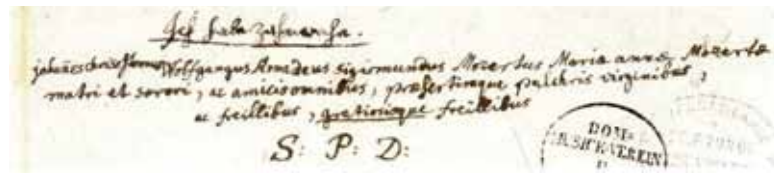 Ich habe zahnwehe.
johannes chrisostomus Wolfgangus Amadeus Sigismundus Mozartus Mariae annae Mozartae
matri et sorori, ac amicis omnibus, præsertimque pulchris virginibus,
ac freillibus, gratiosisque freillibus
S: P: D:
DOM-
MUSIKVEREIN